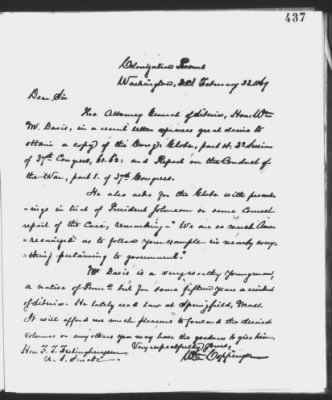 437
Colonization Rooms
Washington, February 23. 1869
Dear Sir
The Attorney General of Liberia, Hon. Wm
M. Davis, in a recent letter expresses great desire to
obtain a copy of the Cong'l. Globe, part 4. 3d Session
of 37th Congress, and Report on the Conduct of
the War, part 1. of 37th Congress.
He also asks for the Globe with proceed-
-ings in trial of President Johnson or some
of the Case, remarking - "We are so much Ame-
-ricanized as to follow your example in nearly every
-thing pertaining to government."
Mr Davis is a very worthy young man,
a native of Penn'a but for some fifteen years a resident
of Liberia. He lately read law at Springfield, Mass.
It will afford me much pleasure to forward the desired
volumes or any others you may have the goodness to give him.
Very respectfully Yours,
Wm Coppinger
Hon F. T. Frelinghuysen
U. S. Senate